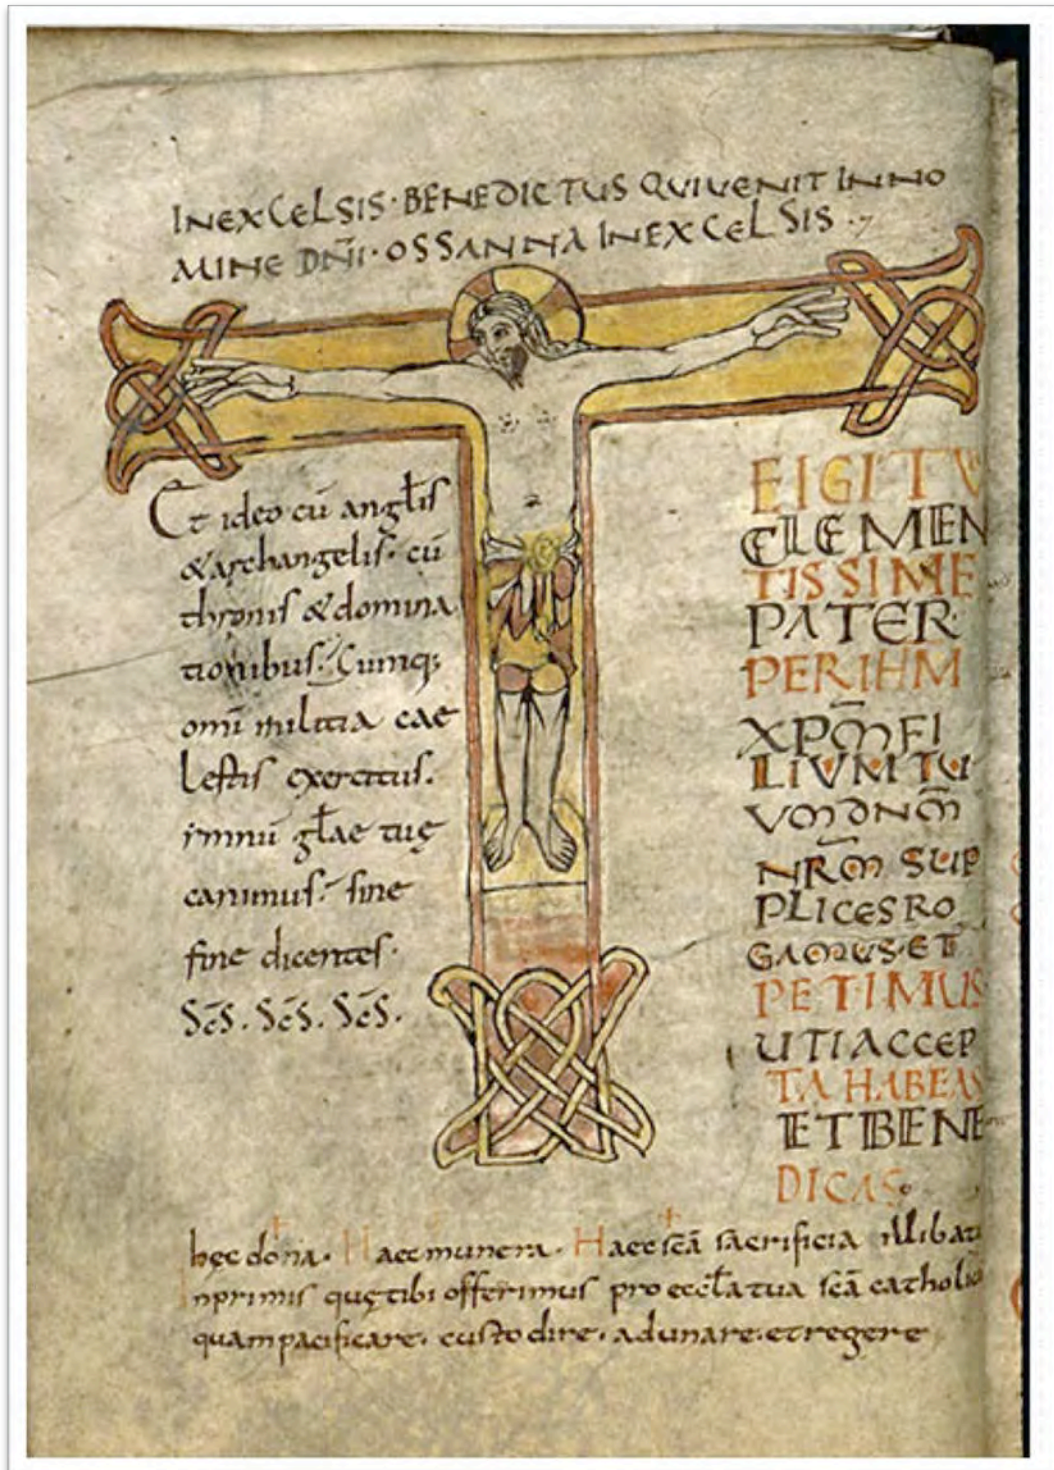 INEXCELSIS·BENEDICTUS QUIUENIT INNO
MINE DN̄I·OSSANNA INEXCELSIS·
Et ideo cū anglis
&archangelis· cū
thronis &domina
tionibus· Cumq;
omī militia cae
lestis exercitus·
imnū glae tuę
canimus· sine
fine dicentes·
Sc̄S· Sc̄S· Sc̄S·
EIGITV
CLEMEN
TISSIME
PATER·
PERIHM
XPM̄FI
LIVMTU
VMDNM̄
NRM̄ SUP
PLICESRO
GAMUS·ET
PETIMUS
UTIACCEP
TA HABEAS
ETBENE
DICAS
hęc dona· Haec munera· Haec scā sacrificia illibata
Inprimis quętibi offerimus pro eccla tua scā catholic
quam pacificare· custodire· adunare·etregere